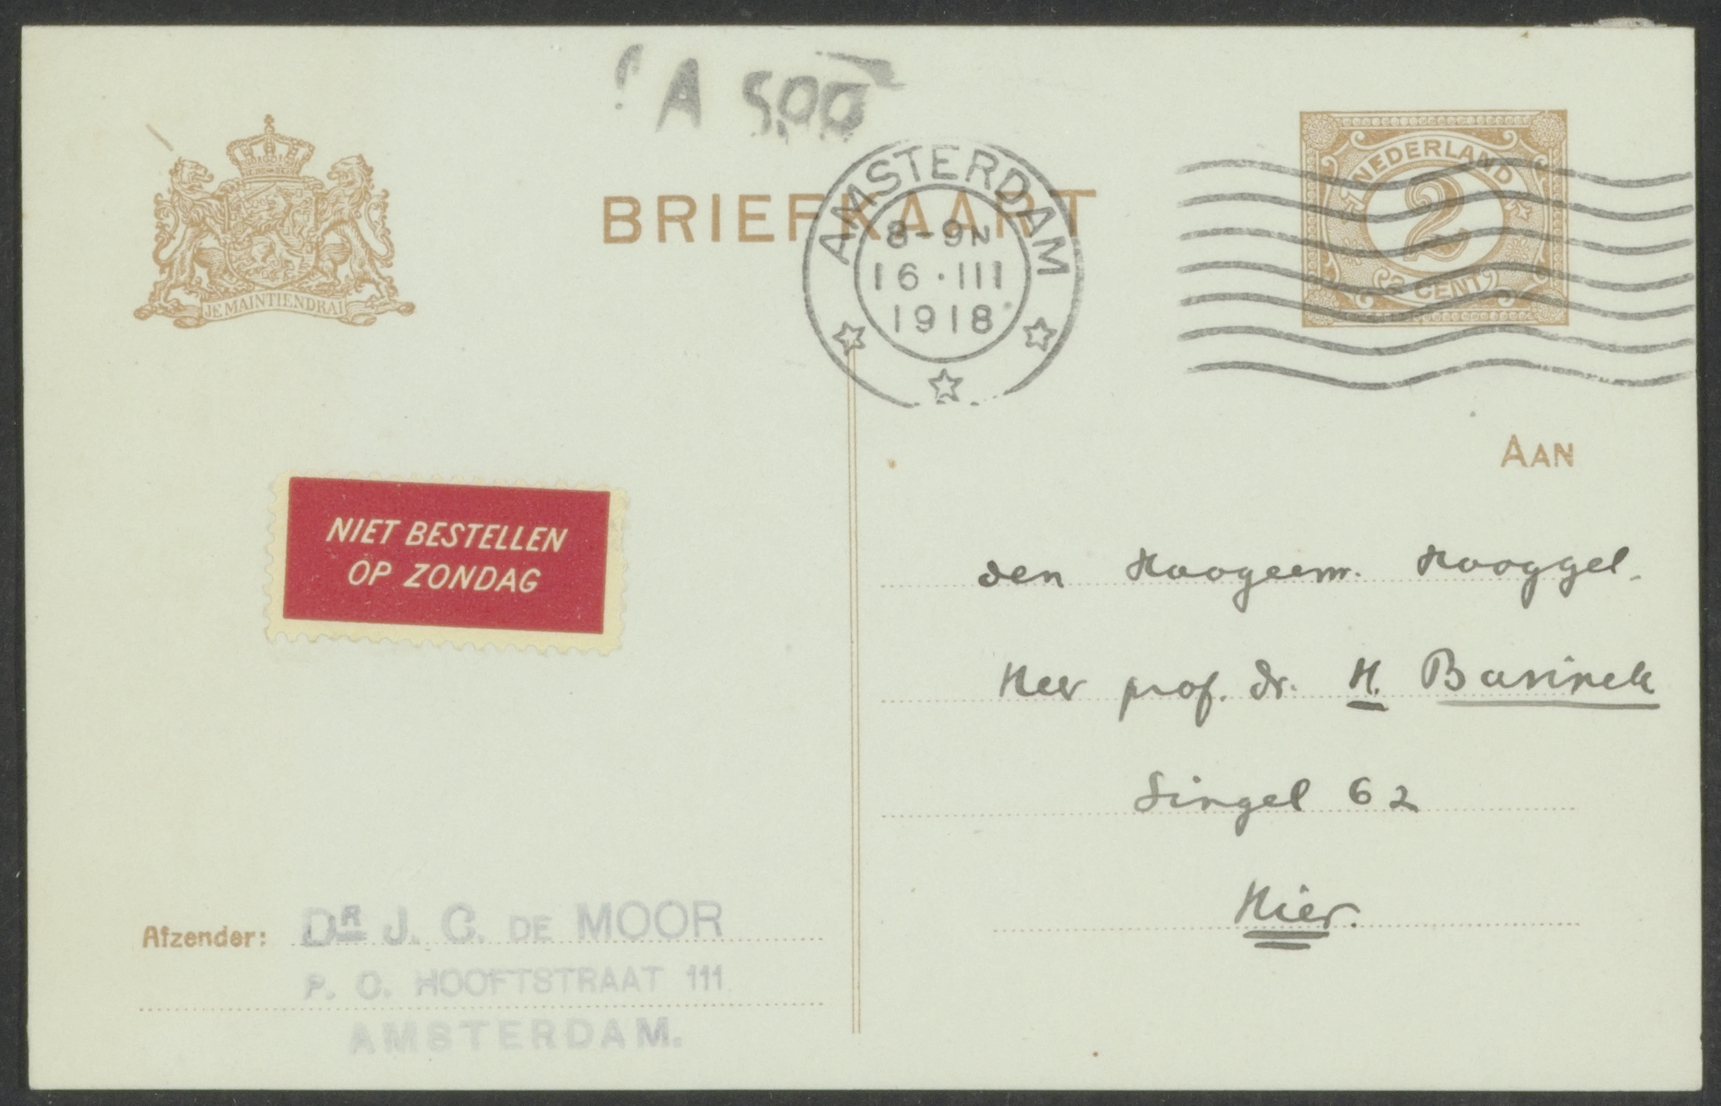 A 500
BRIEFKAART
JE MAINTIENDRAI
AMSTERDAM
8-9N
16·III
1918
NEDERLAND
2
2 CENT
AAN
NIET BESTELLEN
OP ZONDAG
den Hoogeerw. Hooggel.
Heer prof. dr. H. Bavinck
Singel 62
Hier.
Afzender: DR J. C. DE MOOR
P. C. HOOFTSTRAAT 111
AMSTERDAM.